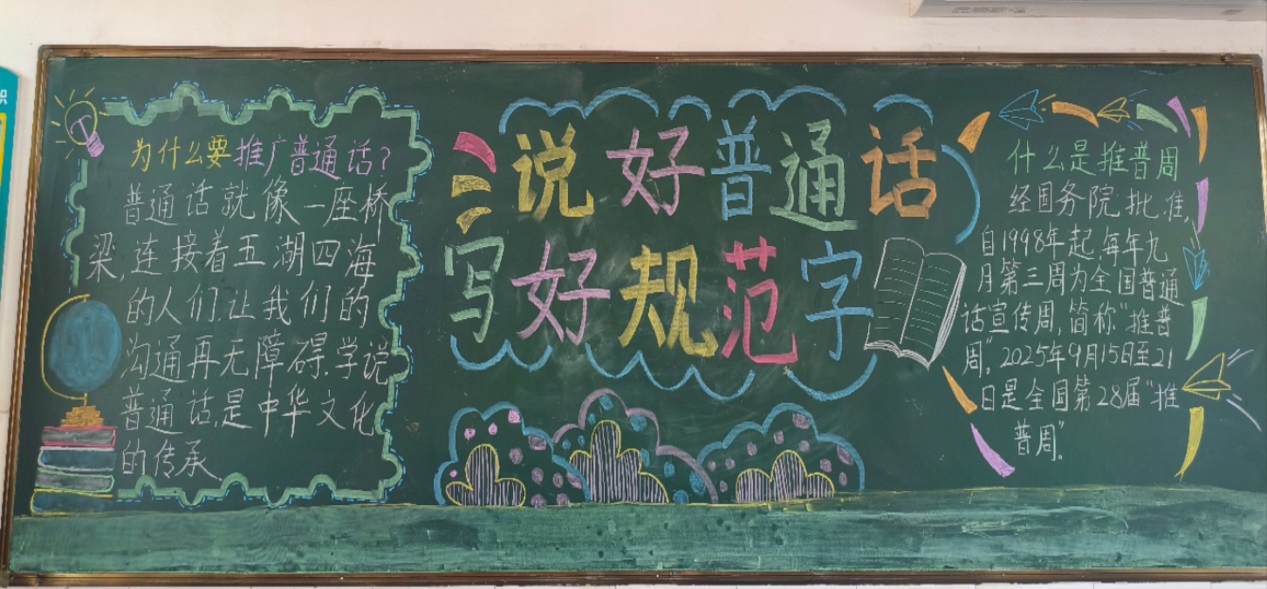 为什么要推广普通话?
普通话就像一座桥
梁,连接着五湖四海
的人们,让我们的
沟通再无障碍.学说
普通话,是中华文化
的传承.
说好普通话
写好规范字
什么是推普周
经国务院批准,
自1998年起,每年九
月第三周为全国普通
话宣传周,简称"推普
周",2025年9月15日至21
日是全国第28届"推
普周"。